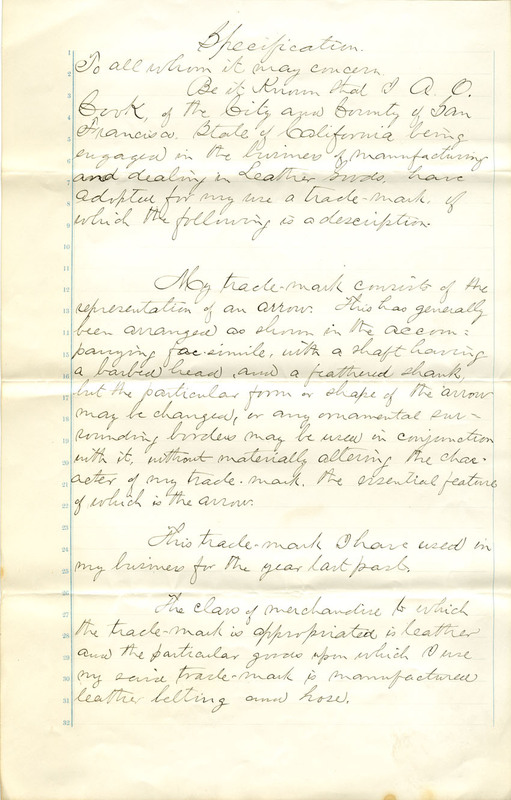 Specification.
To all whom it may concern.
Be it Known that I A. O.
Cook, of the City and County of San
Francisco. State of California being
engaged in the business of manufacturing
and dealing in Leather Goods, have
adopted for my use a trade-mark, of
which the following is a description.
My trade-mark consists of the
representation of an arrow. This has generally
been arranged as shown in the accom=
panying fac-simile, with a shaft having
a barbed head and a feathered shank,
but the particular form or shape of the arrow
may be changed, or any ornamental sur-
rounding borders may be used in conjunction
with it, without materially altering the char-
acter of my trade-mark, the essential feature
of which is the arrow.
This trade-mark I have used in
my business for the year last past.
The class of merchandise to which
the trade-mark is appropriated is leather
and the particular goods upon which I use
my said trade-mark is manufactured
leather belting and hose.
1
2
3
4
5
6
7
8
9
10
11
12
13
14
15
16
17
18
19
20
21
22
23
24
25
26
27
28
29
30
31
32